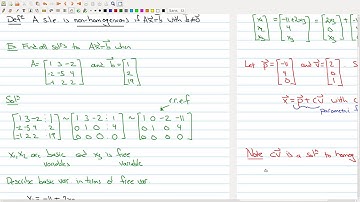 Defⁿ A SLE is non-homogeneous if Ax⃗=b⃗ with b⃗≠0⃗
Ex Find all solⁿs to Ax⃗=b⃗ when
A = [1 3 -2; -2 -5 4; -1 2 2] and b⃗ = [1; 2; 19]
Solⁿ
r.r.e.f
[1 3 -2 : 1; -2 -5 4 : 2; -1 2 2 : 19] ~ [1 3 -2 : 1; 0 1 0 : 4; 0 0 0 : 0] ~ [1 0 -2 -11; 0 1 0 4; 0 0 0 0]
x₁, x₂ are basic and x₃ is free
variables variable
Describe basic var. in terms of free var
x₁ = -11 + 2x₃
[x₁; x₂; x₃] = [-11+2x₃; 4; x₃] = [2x₃; 0; x₃]
Let p⃗ = [-11; 4; 0] and v⃗ = [2; 0;
x⃗ = p⃗ + cv⃗ with c
parametric f
Note cv⃗ is a solⁿ to homog